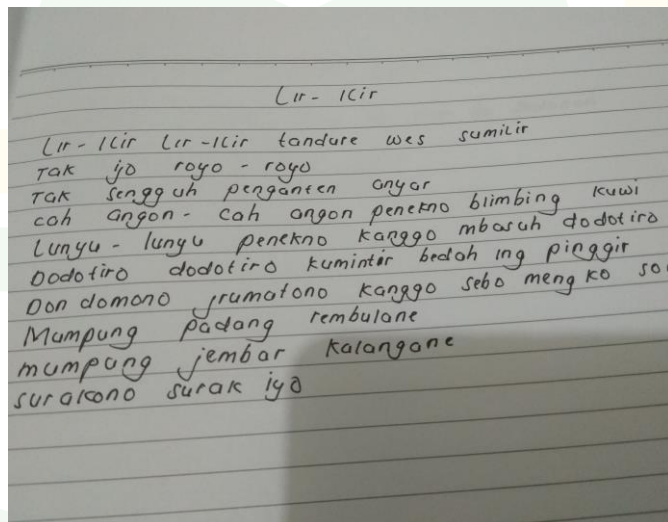 Lir - Ilir
Lir - Ilir Lir - Ilir tandure wes sumilir
Tak ijo royo - royo
Tak sengguh penganten anyar
cah angon - cah angon penekno blimbing kuwi
Lunyu - lunyu penekno kanggo mbasuh dodotiro
Dodotiro dodotiro kumintir bedah ing pinggir
Don domono jrumatono kanggo sebo mengko
Mumpung padang rembulane
mumpung jembar kalangane
surakono surak iyo